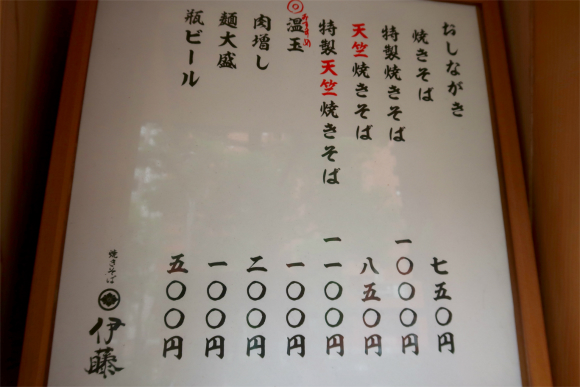 おしながき
焼きそば 七五〇円
特製焼きそば 一〇〇〇円
天竺焼きそば 八五〇円
特製天竺焼きそば 一一〇〇円
温玉 一〇〇円
肉増し 二〇〇円
麺大盛 一〇〇円
瓶ビール 五〇〇円
焼きそば
伊藤